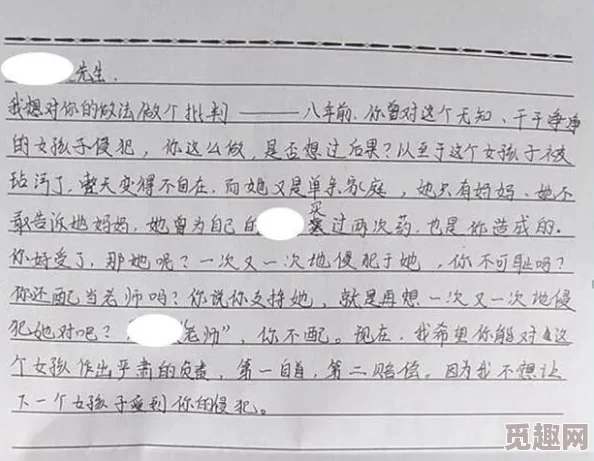 先生.
我想对你的做法做个批判——八年前.你曾对这个无知、干干净净
的女孩子侵犯，你这么做，是否想过后果？以至于这个女孩子被
玷污了.整天变得不自在.而她又是单亲家庭，她只有妈妈.她不
敢告诉她妈妈.她曾为自己的买过两次药.也是你造成的.
你好受了，那她呢？一次又一次地侵犯于她，你不可耻吗？
你还配当老师吗？你说你支持她，就是再想一次又一次地侵
犯她对吧？"老师"，你不配。现在，我希望你能对这
个女孩作出严肃的负责，第一自首，第二赔偿。因为我不想让
下一个女孩子受到你的侵犯。
觅趣网